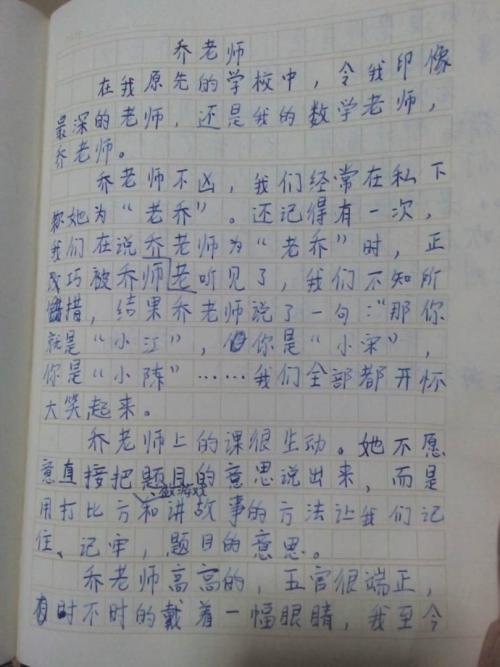 乔老师
在我原先的学校中，令我印像
最深的老师，还是我的数学老师，
乔老师。
乔老师不凶，我们经常在私下
称她为“老乔”。还记得有一次，
我们在说乔老师为“老乔”时，正
巧被乔师老听见了，我们不知所
措，结果乔老师说了一句：“那你
就是“小江”，你是“小宋”，
你是“小陈”……我们全部都开怀
大笑起来。
乔老师上的课很生动。她不愿
意直接把题目的意思说出来，而是
做游戏
用打比方和讲故事的方法让我们记
住、记牢，题目的意思。
乔老师高高的，五官很端正，
时不时的戴着一幅眼睛，我至今